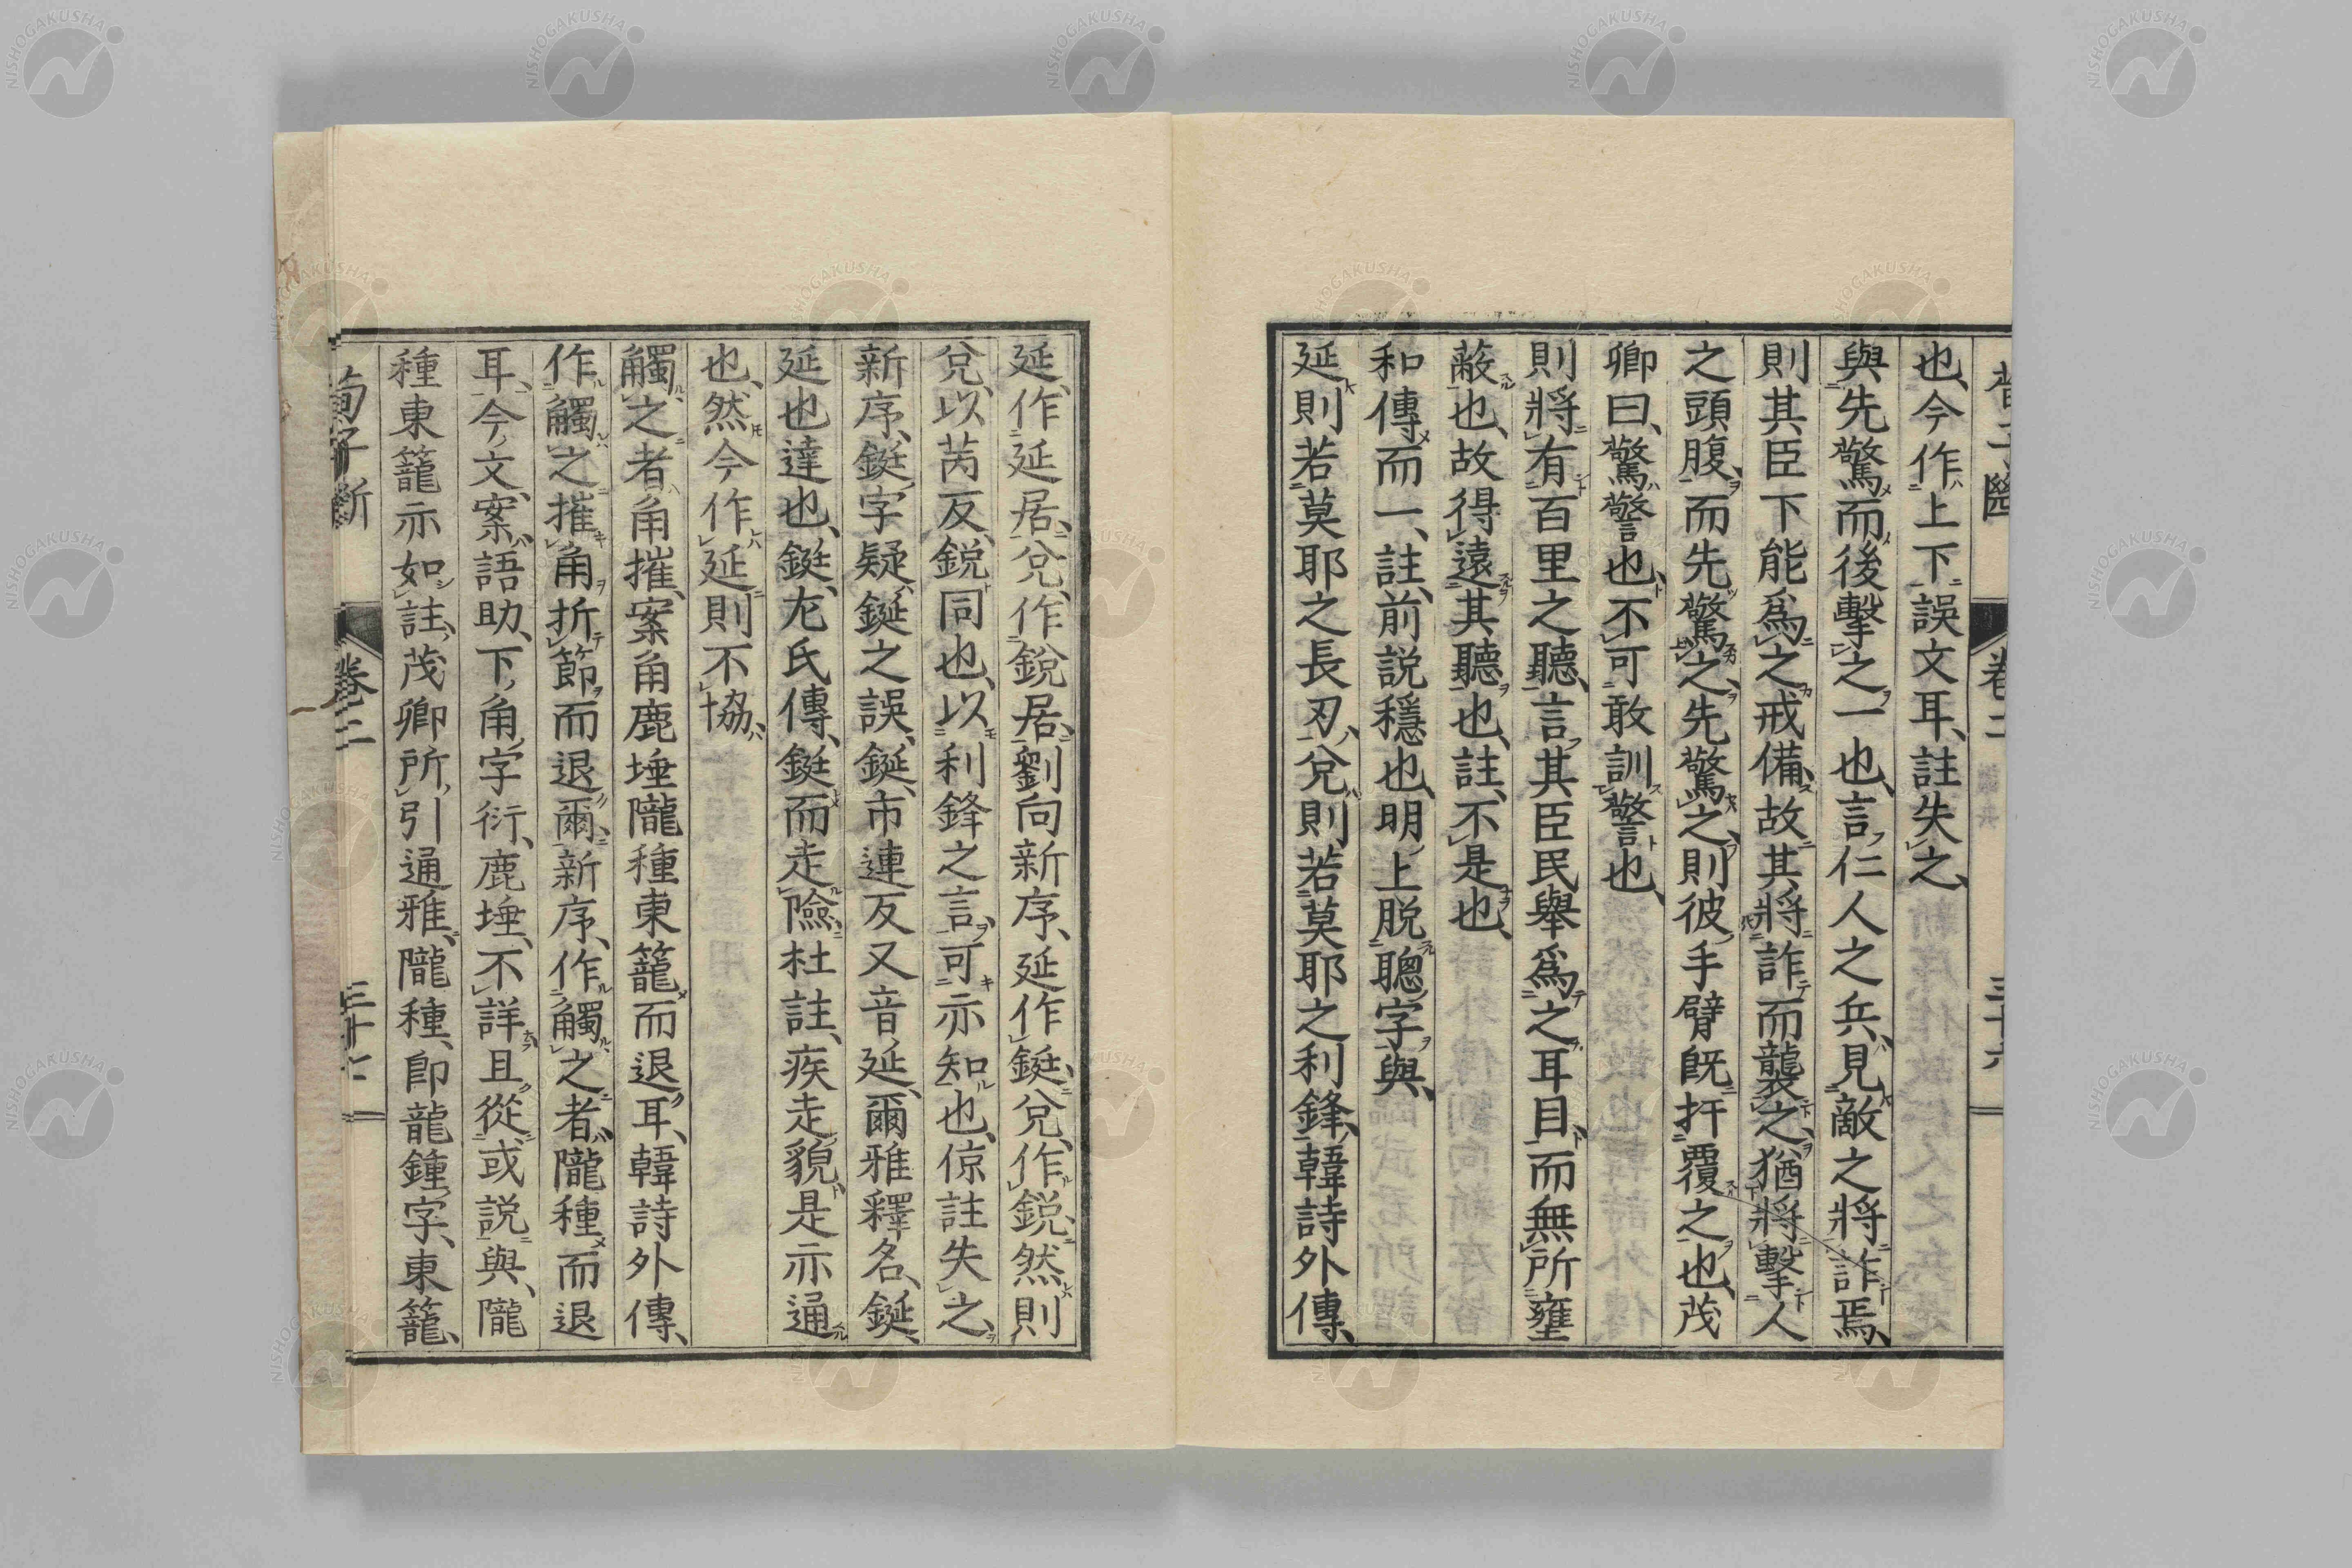 也、今作上下、誤文耳、註失之、
與先驚而後擊之一也、言仁人之兵、見敵之將詐焉、
則其臣下能爲之戒備、故其將詐而襲之、猶將擊人
之頭腹、而先驚之、先驚之、則彼手臂既扞覆之也、茂
卿曰、驚警也、不可敢訓警也、
則將有百里之聽、言其臣民舉爲之耳目、而無所壅
蔽也、故得遠其聽也、註、不是也、
和傳而一、註、前説穩也、明上脱聰字與、
延則若莫耶之長刃、兌則若莫耶之利鋒、韓詩外傳、
卷二
延作延居、兌作銳居、劉向新序、延作鋌、兌作鋭、然則
兌、以芮反、鋭同也、以利鋒之言、可亦知也、倞註失之、
新序、鋌字疑、鋋之誤、鋋、市連反又音延、爾雅釋名、鋋
延也達也、鋌、左氏傳、鋌而走險、杜註、疾走貌、是亦通
也、然今作延則不協、
觸之者角摧、案角鹿埵隴種東籠而退耳、韓詩外傳、
作觸之摧角折節而退爾、新序、作觸之者、隴種而退
耳、今文案、語助、下角字衍、鹿埵、不詳、且從或説與、隴
種東籠亦如註、茂卿所引通雅、隴種、卽龍鍾字、東籠、
荀子斷
卷二
三十七